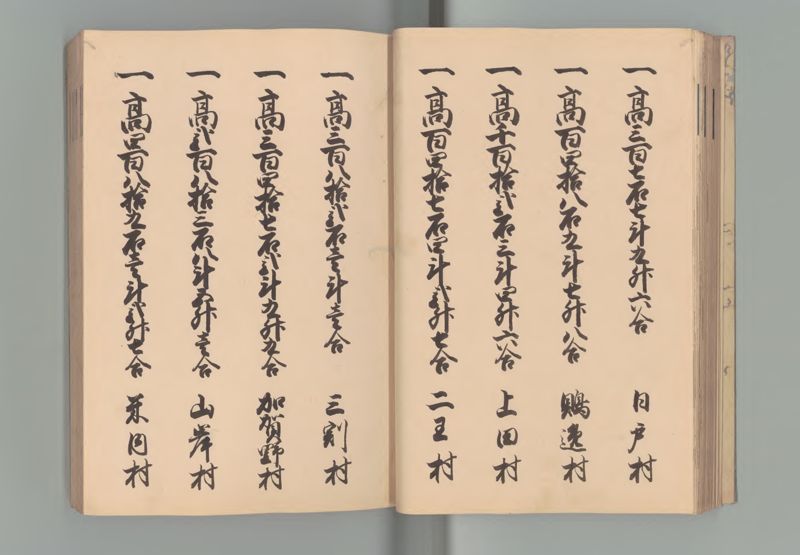 一高三百七石七斗九升六合 日戸村
一高百四拾八石九斗七升八合 鵜逃村
一高千百拾弐石三斗四升六合 上田村
一高百四拾七石四斗弐升七合 二王村
一高三百八拾弐石壱斗壱合 三割村
一高三百四拾七石弐斗九升九合 加賀野村
一高弐百八拾三石八斗五升壱合 山岸村
一高四百八拾九石壱斗弐升七合 米内村